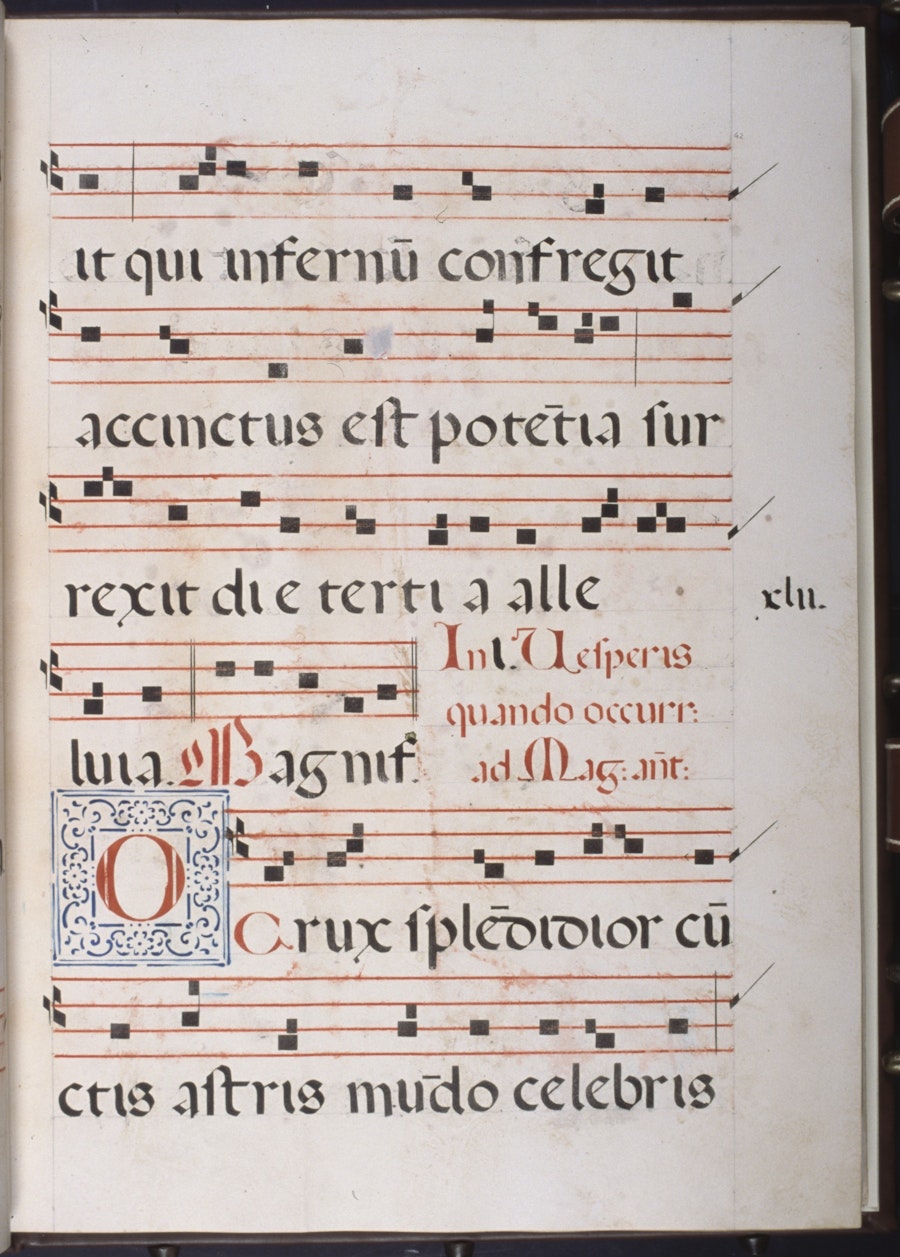 it qui infernū confregit
accinctus eſt potētia ſur
rexit di e terti a alle
xlii.
In I. Ueſperis
quando occurr:
luia. Magnif.
ad Mag: añt:
O Crux ſplēdidior cū
ctis aſtris mūdo celebris